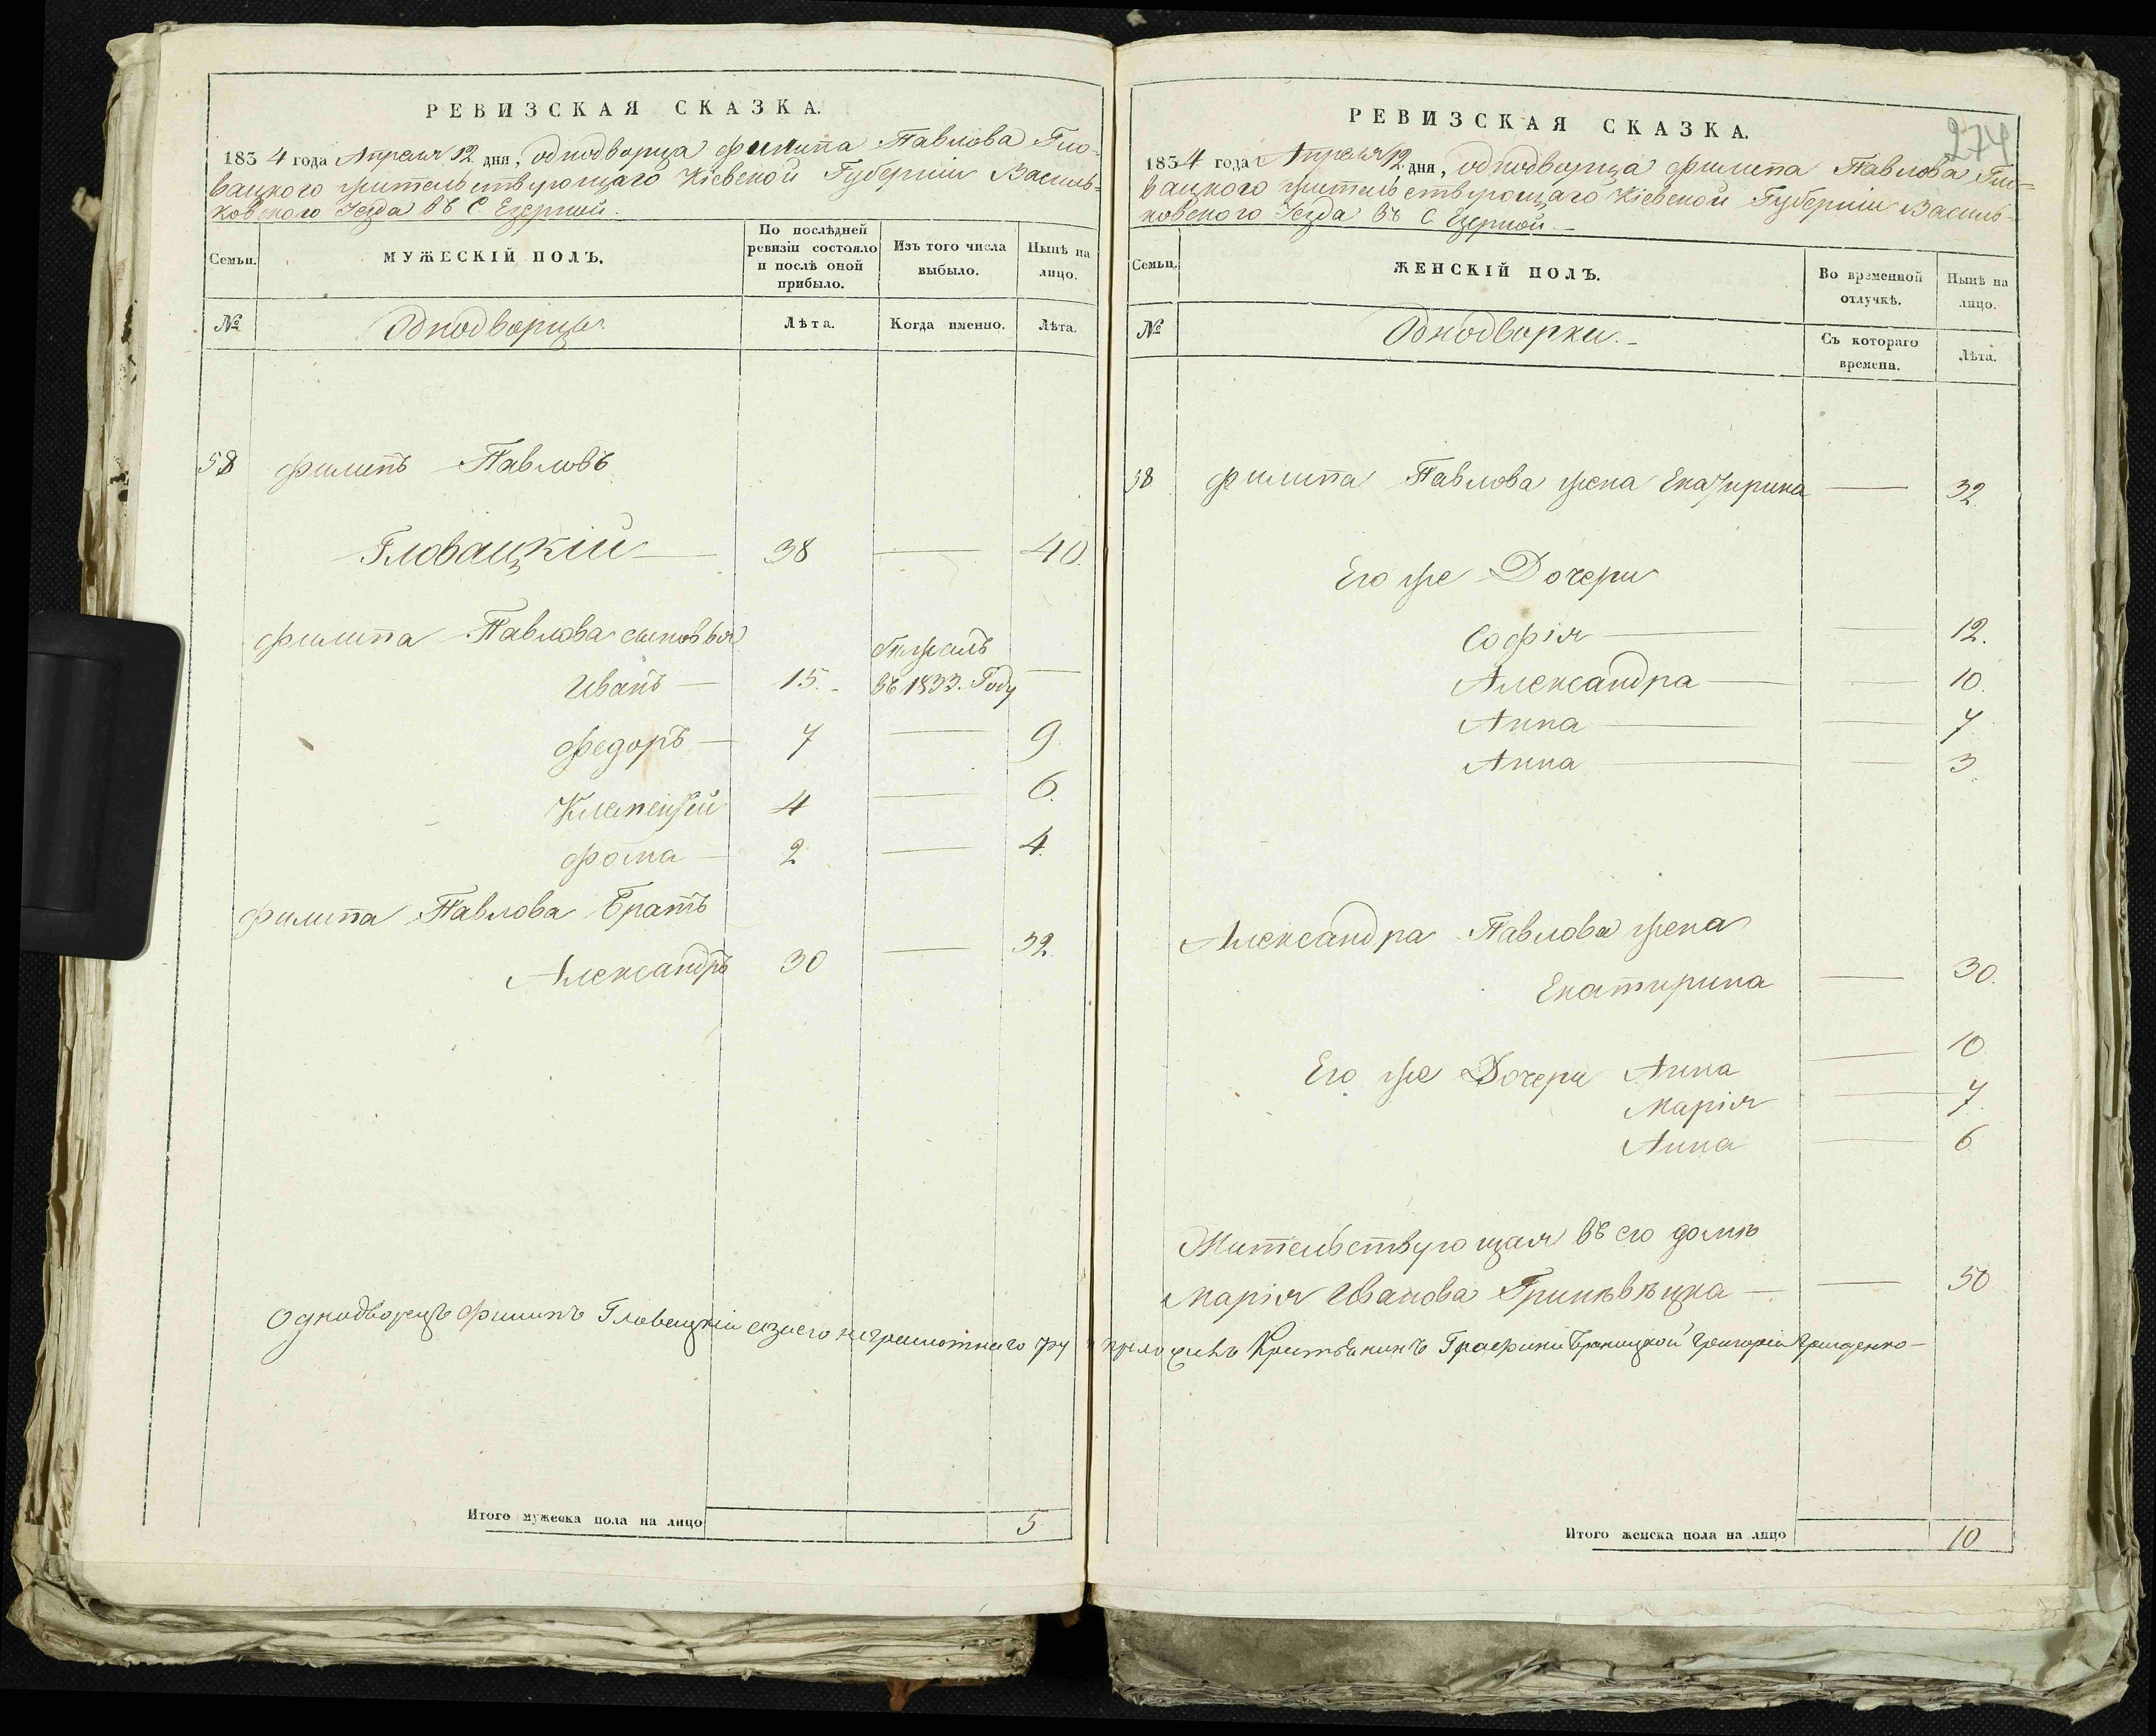 РЕВИЗСКАЯ СКАЗКА.
1834 года Апреля 12 дня, однодворца Филипа Павлова Гло-
вацкого жительствующаго Кіевской Губерніи Василь-
ковского Уезда въ С. Езерной.
Семьи.
МУЖЕСКІЙ ПОЛЪ.
По послѣдней ревизіи состояло и послѣ оной прибыло.
Изъ того числа выбыло.
Нынѣ на лицо.
№
Однодворцы
Лѣта.
Когда именно.
Лѣта.
58 Филипъ Павловъ
Гловацкій — 38 — 40.
Филипа Павлова сыновья
Иванъ — 15. бежалъ въ 1833. Году —
Федоръ — 7 — 9.
Клеменсій 4 — 6.
Фома — 2 — 4.
Филипа Павлова Братъ
Александръ 30 — 32.
Итого мужеска пола на лицо 5
274
РЕВИЗСКАЯ СКАЗКА.
1834 года Апреля 12 дня, однодворца Филипа Павлова Гло-
вацкого жительствующаго Кіевской Губерніи Василь-
ковского Уезда въ С. Езерной. —
Семьи.
ЖЕНСКІЙ ПОЛЪ.
Во временной отлучкѣ.
Нынѣ на лицо.
№
Однодворки. —
Съ котораго времени.
Лѣта.
58 Филипа Павлова жена Екатирина — 32.
Его же Дочери
Софія — — 12.
Александра — — 10.
Анна — — 7
Анна — — 3.
Александра Павлова жена
Екатирина — 30.
Его же Дочери Анна — 10
Марія — 7.
Анна — 6
Жительствующая въ его домѣ
Марія Иванова — — 50
Однодворецъ Филипъ Гловацкій а за его неграмотнаго руку приложивъ Крестьянинъ Графини Браницкой Григорій
Итого женска пола на лицо 10